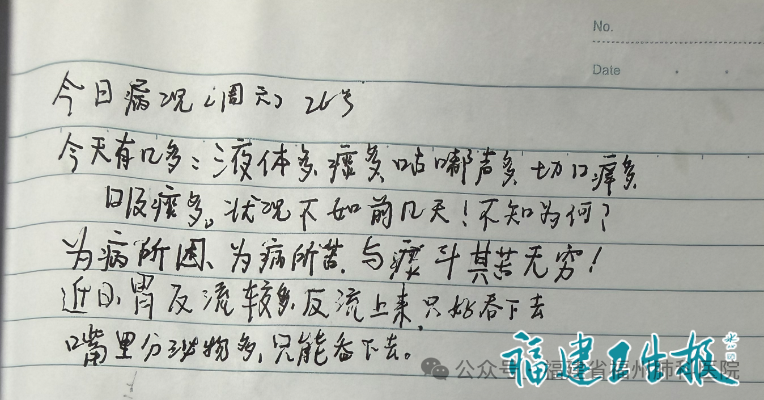 No.
Date
今日病况（周天）26号
今天有几多：液体多、痰多、咕嘟声多、切口痒多、
吸痰多。状况不如前几天！不知为何？
为病所困、为病所苦，与痰斗其苦无穷！
近日，胃反流较多，反流上来，只好吞下去
嘴里分泌物多，只能吞下去。
公众号 福建省福州肺科医院
福建卫生报